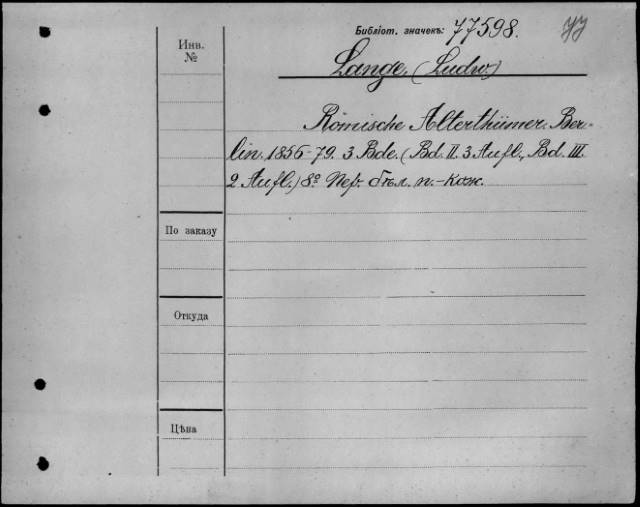 Библіот. значекъ: 77598. 77
Инв.
№
Lange. (Ludw.)
Römische Alterthümer. Ber-
lin. 1856-79. 3 Bde. (Bd. II. 3 Aufl., Bd. III.
2 Aufl.) 8º Пер. бѣл. п.-кож.
По заказу
Откуда
Цѣна